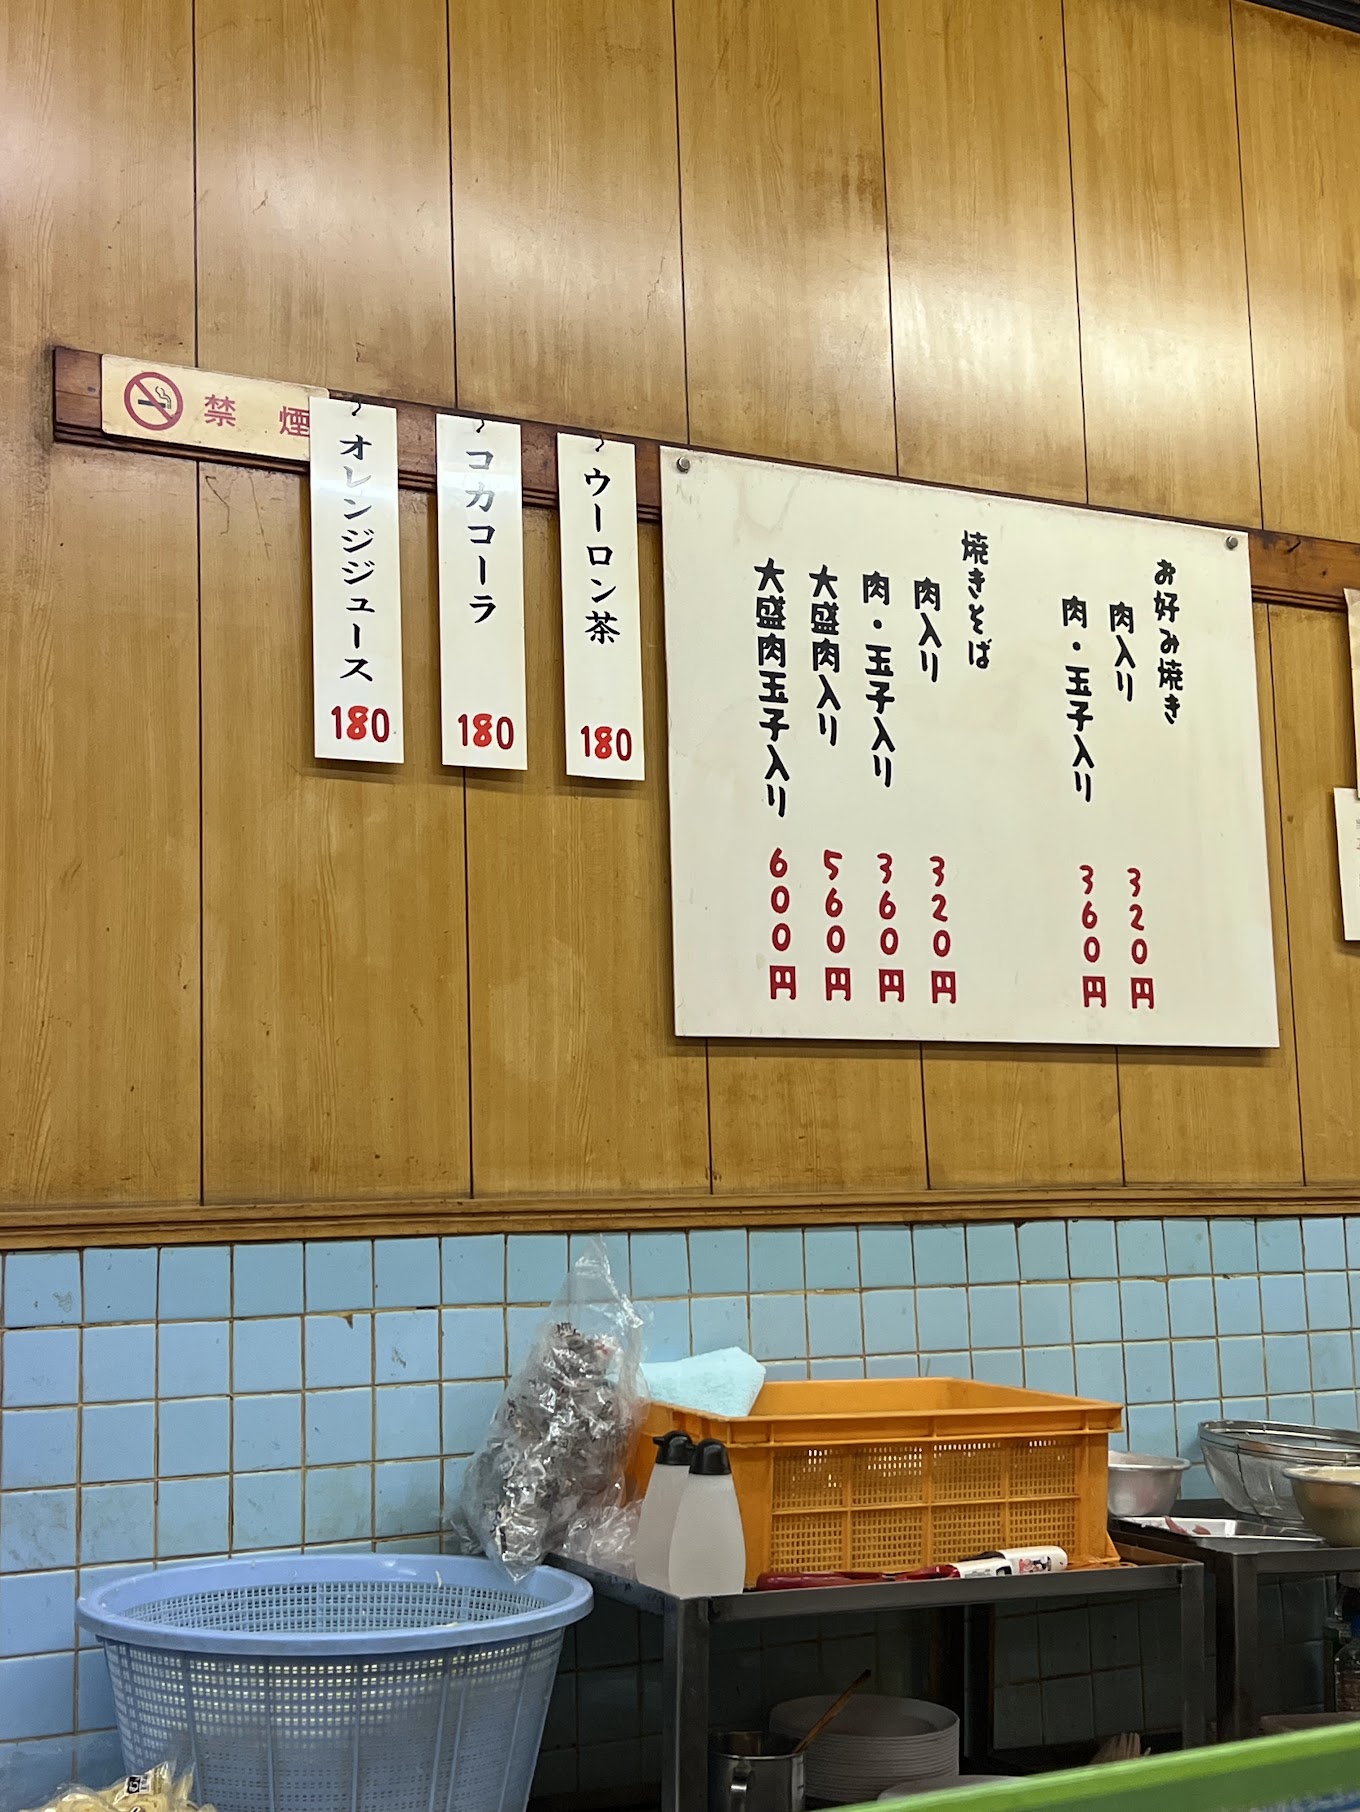 お好み焼き
肉入り 320円
肉・玉子入り 360円
焼きそば
肉入り 320円
肉・玉子入り 360円
大盛肉入り 560円
大盛肉玉子入り 600円
ウーロン茶 180
コカコーラ 180
オレンジジュース 180
禁煙